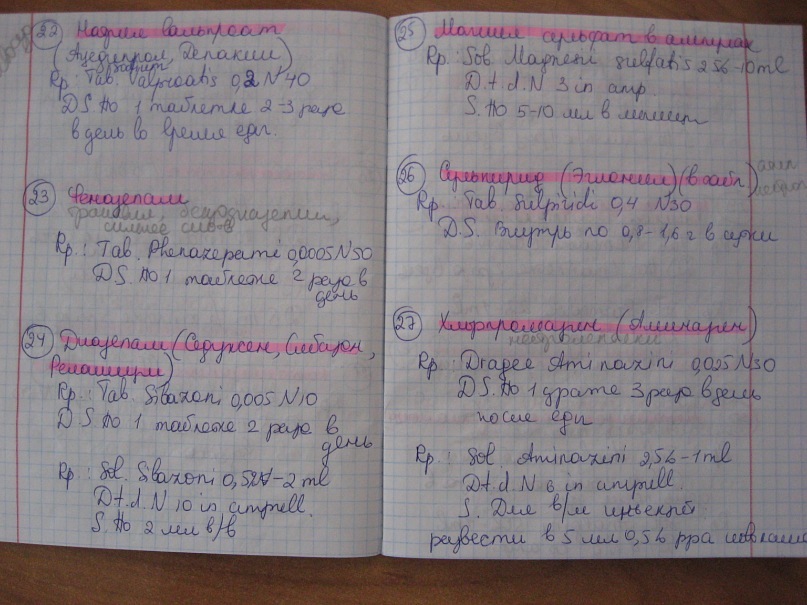 22 Натрия вальпроат
(Ацедипрол, Депакин)
Rp.: Tab. Valproatis 0,2 N 40
DS. По 1 таблетке 2-3 раза
в день во время еды.
23 Феназепам
транквил, бензодиазепин,
сильнее сиб-а
Rp.: Tab. Phenazepami 0,0005 N 50
DS. По 1 таблетке 2 раза в
день
24 Диазепам (Седуксен, Сибазон,
Реланиум)
Rp.: Tab. Sibazoni 0,005 N 10
DS. По 1 таблетке 2 раза в
день
Rp.: Sol. Sibazoni 0,5%-2 ml
D.t.d. N 10 in ampull.
S. По 2 мл в/в
25 Магния сульфат в ампулах
Rp.: Sol. Magnesii sulfatis 25%-10 ml
D.t.d. N 3 in amp.
S. По 5-10 мл в мышцы
26 Сульпирид (Эглонил) (в табл)
Rp.: Tab. Sulpiridi 0,4 N 30
D.S. Внутрь по 0,8-1,6 г в сутки
27 Хлорпромазин (Аминазин)
нейролептики
Rp.: Dragee Aminazini 0,025 N 30
DS. По 1 драже 3 раза в день
после еды
Rp.: Sol. Aminazini 2,5%-1 ml
D.t.d. N 6 in ampull.
S. Для в/м инъекций:
развести в 5 мл 0,5% р-ра